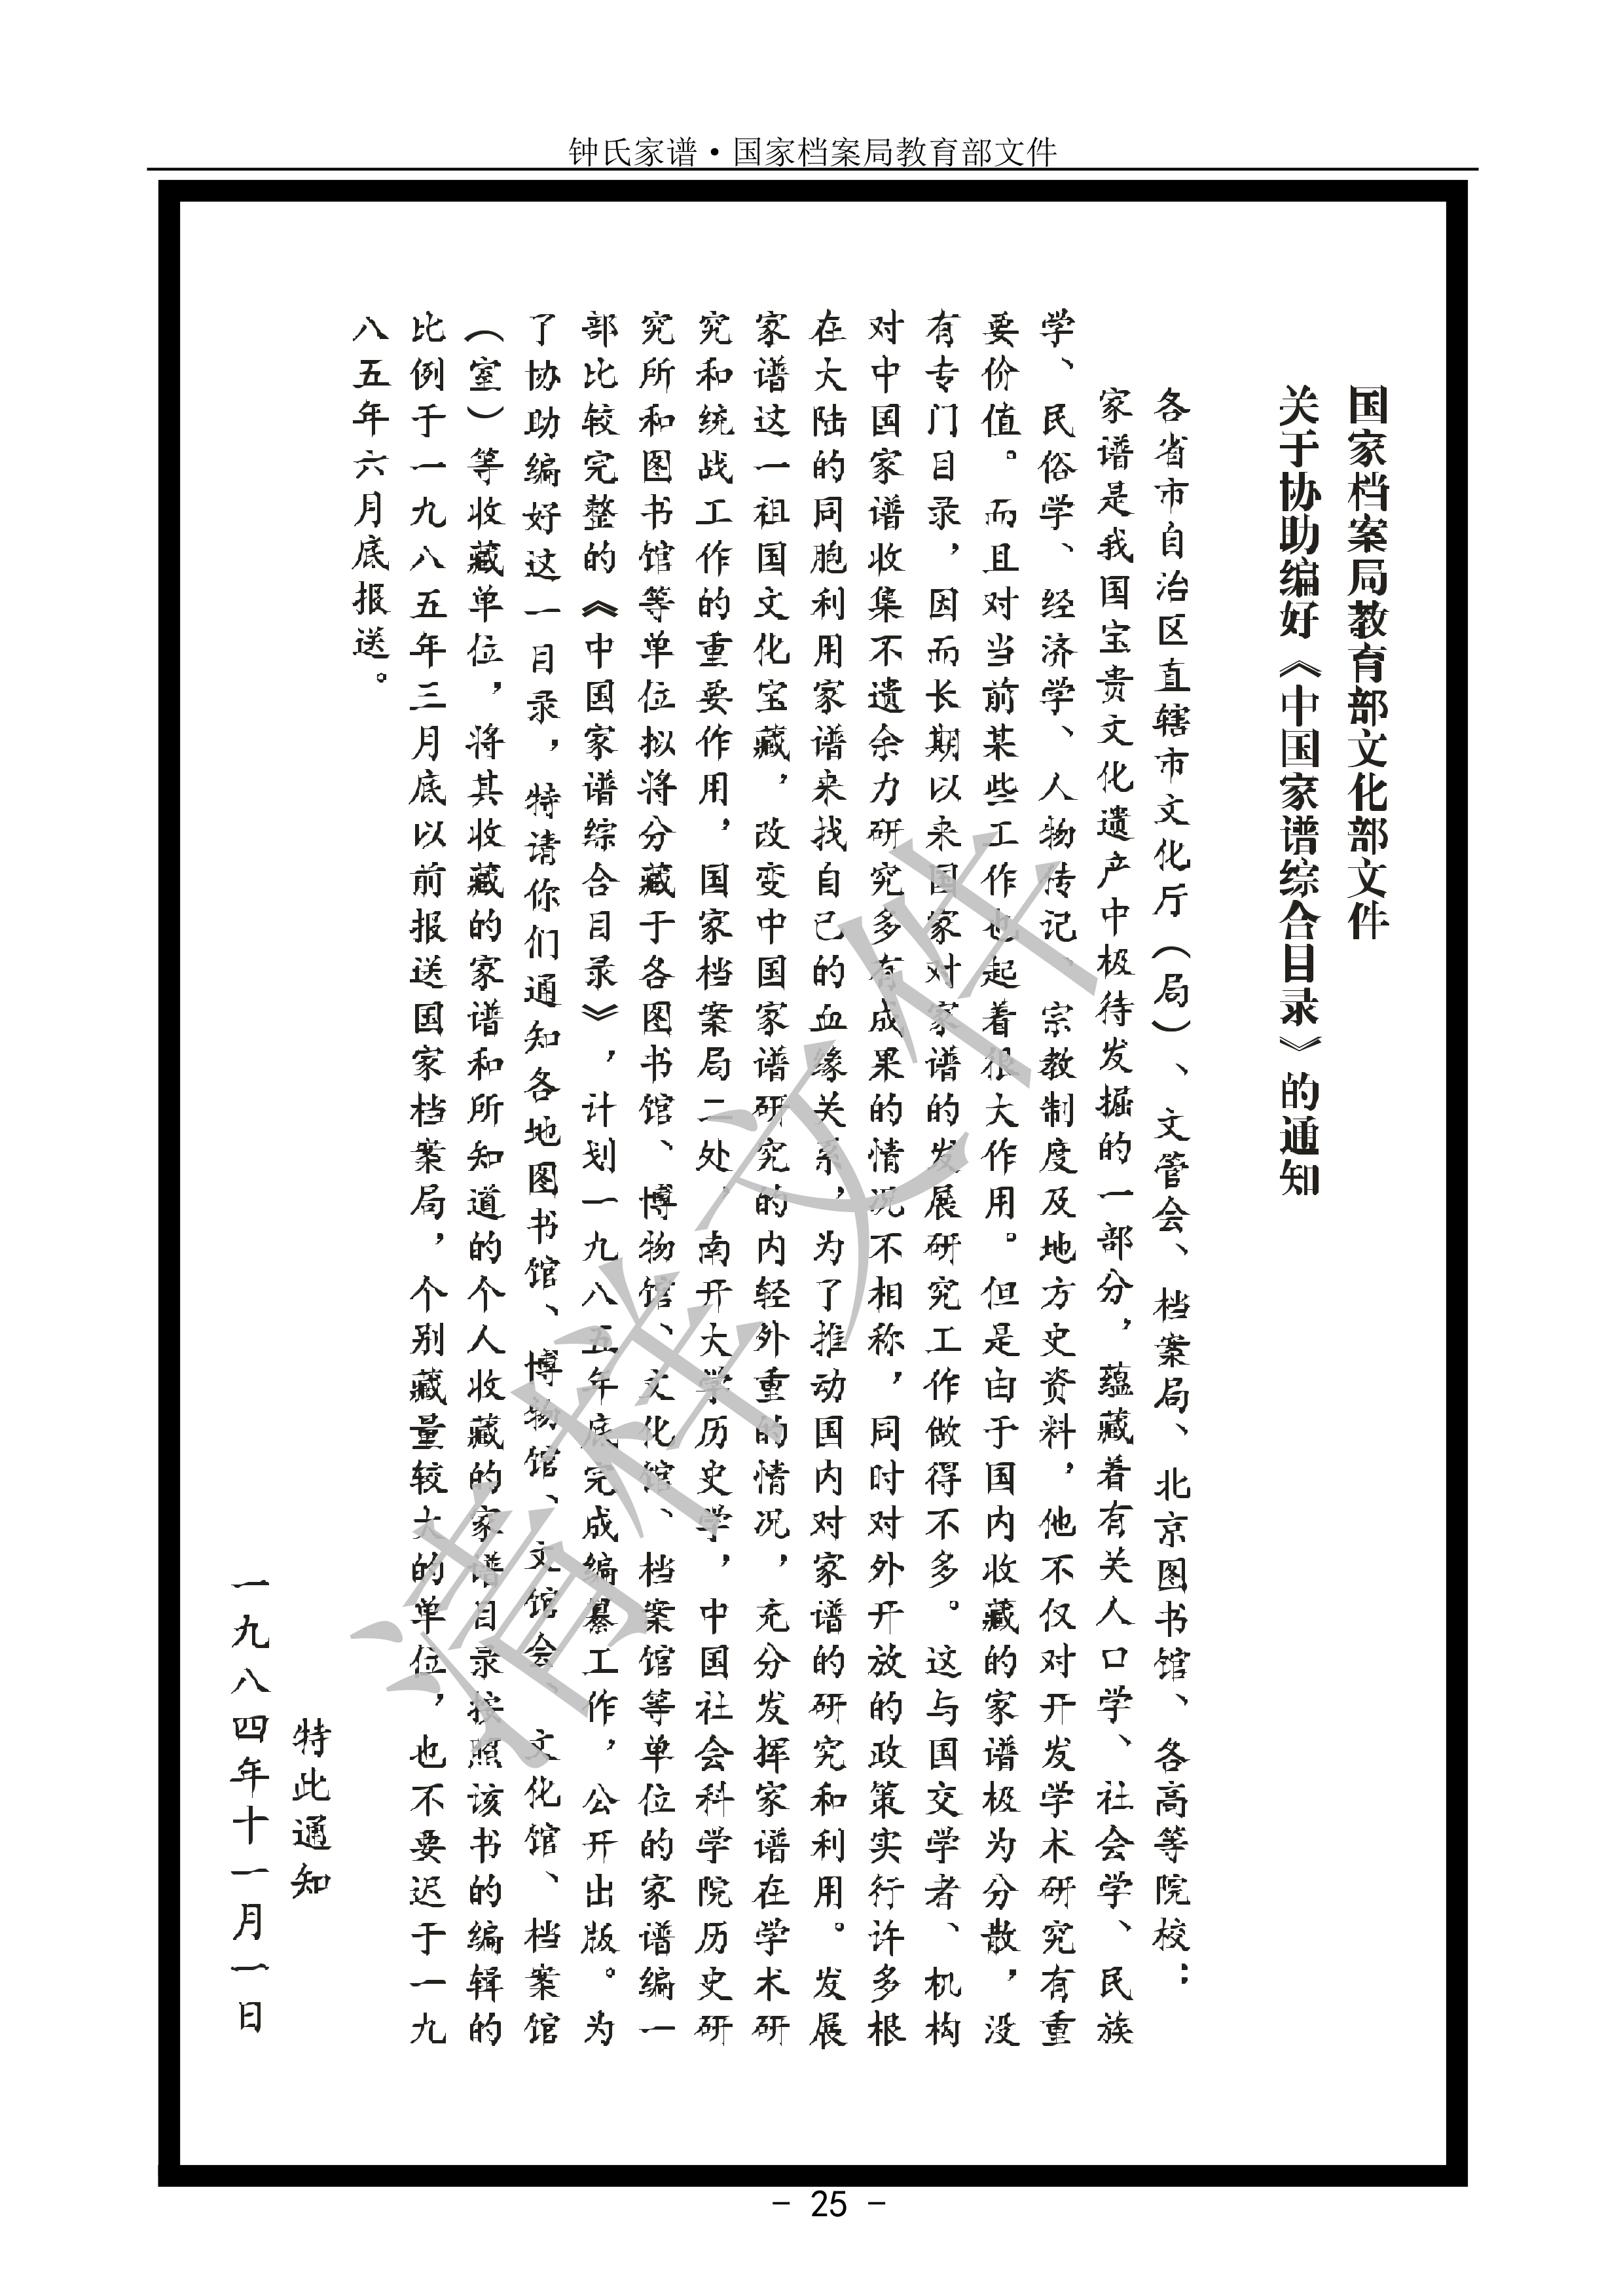 钟氏家谱·国家档案局教育部文件
国家档案局教育部文化部文件
关于协助编好《中国家谱综合目录》的通知
各省市自治区直辖市文化厅（局）、文管会、档案局、北京图书馆、各高等院校：
家谱是我国宝贵文化遗产中极待发掘的一部分，蕴藏着有关人口学、社会学、民族
学、民俗学、经济学、人物传记、宗教制度及地方史资料，他不仅对开发学术研究有重
要价值。而且对当前某些工作也起着很大作用。但是由于国内收藏的家谱极为分散，没
有专门目录，因而长期以来国家对家谱的发展研究工作做得不多。这与国交学者、机构
对中国家谱收集不遗余力研究多有成果的情况不相称，同时对外开放的政策实行许多根
在大陆的同胞利用家谱来找自己的血缘关系，为了推动国内对家谱的研究和利用。发展
家谱这一祖国文化宝藏，改变中国家谱研究的内轻外重的情况，充分发挥家谱在学术研
究和统战工作的重要作用，国家档案局二处，南开大学历史学，中国社会科学院历史研
究所和图书馆等单位拟将分藏于各图书馆、博物馆、文化馆、档案馆等单位的家谱编一
部比较完整的《中国家谱综合目录》，计划一九八五年底完成编纂工作，公开出版。为
了协助编好这一目录，特请你们通知各地图书馆、博物馆、文馆会、文化馆、档案馆
（室）等收藏单位，将其收藏的家谱和所知道的个人收藏的家谱目录按照该书的编辑的
比例于一九八五年三月底以前报送国家档案局，个别藏量较大的单位，也不要迟于一九
八五年六月底报送。
特此通知
一九八四年十一月一日
清样文件
- 25 -